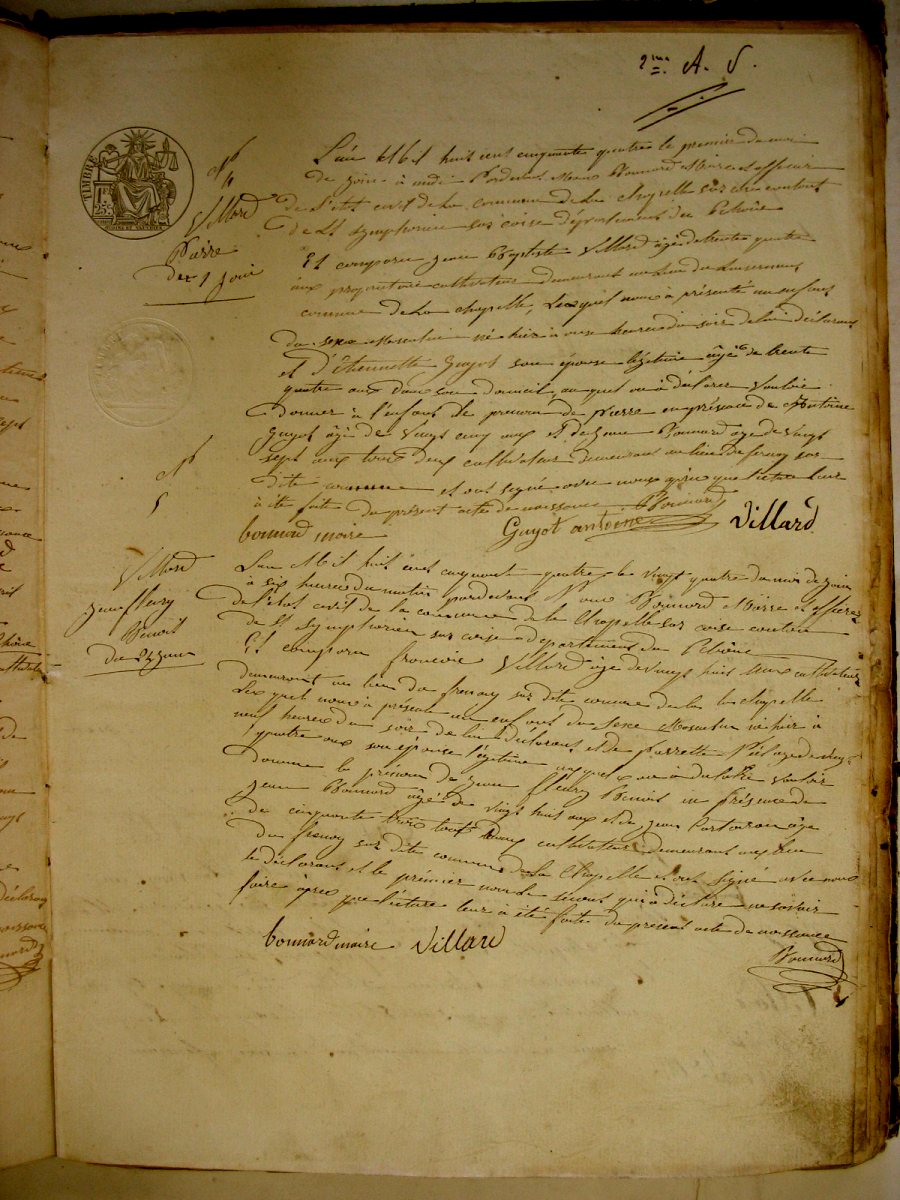 2me A. S.
TIMBRE
1F
25c
No
4
Villard
Pierre
der 1 Juin
L'an Mil huit cent cinquante quatre le premier du moi
de juin à midi Pardevant Nous Bonnard Maire et officier
de l'état civil de la commune de la Chapelle sur coise canton
de St Symphorien sur coise département du Rhône
Et comparu jean Baptiste Villard âgé de trente quatre
ans propriétaire cultivateur demeurant au lieu du
commune de la Chapelle, Lequel nous à présenté un enfant
du sexe Masculin né hier à onze heures du soir de lui déclarant
et d'Etiennette Guyot son épouse légitime âgée de trente
quatre ans dans son domicil, auquel on à déclaré vouloir
donner à l'enfant le prenom de Pierre en présence de Antoine
Guyot âgé de vingt cinq ans et de jean Bonnard âgé de vingt
sept ans tous deux cultivateur demeurant au lieu du frenay sur
dite commune et ont signé avec nous après que lecture leur
à été faite du présent acte de naissance Bonnard
bonnard maire Guyot antoine Villard
No
5
Villard
jean fleury
Benoit
Du 24 juin
L'an Mil huit cent cinquante quatre le vingt quatre du mois de juin
à six heures du matin pardevant Nous Bonnard Maire et officier
de l'état civil de la commune de la Chapelle sur coise canton
de St Symphorien sur coise département du Rhône
Et comparu francois Villard âgé de vingt huit ans cultivateur
demeurant au lieu du frenay sur dite commune de la chapelle
Lequel nous à présenté un enfant du sexe Masculin né hier à
neuf heures du soir de lui déclarant et de pierrette âgé de vingt
quatre ans son épouse légitime auquel on à déclaré vouloir
donner le prénom de jean fleury Benoit en présence de
jean Bonnard âgé de vingt huit ans et de jean âgé
de cinquante trois tout deux cultivateur demeurant au lieu
du frenay sur dite commune de la Chapelle et ont signé avec nous
le déclarant et le premier non le second qui à déclaré ne savoir
faire après que lecture leur à été faite du present acte de naissance
bonnard maire Villard Bonnard